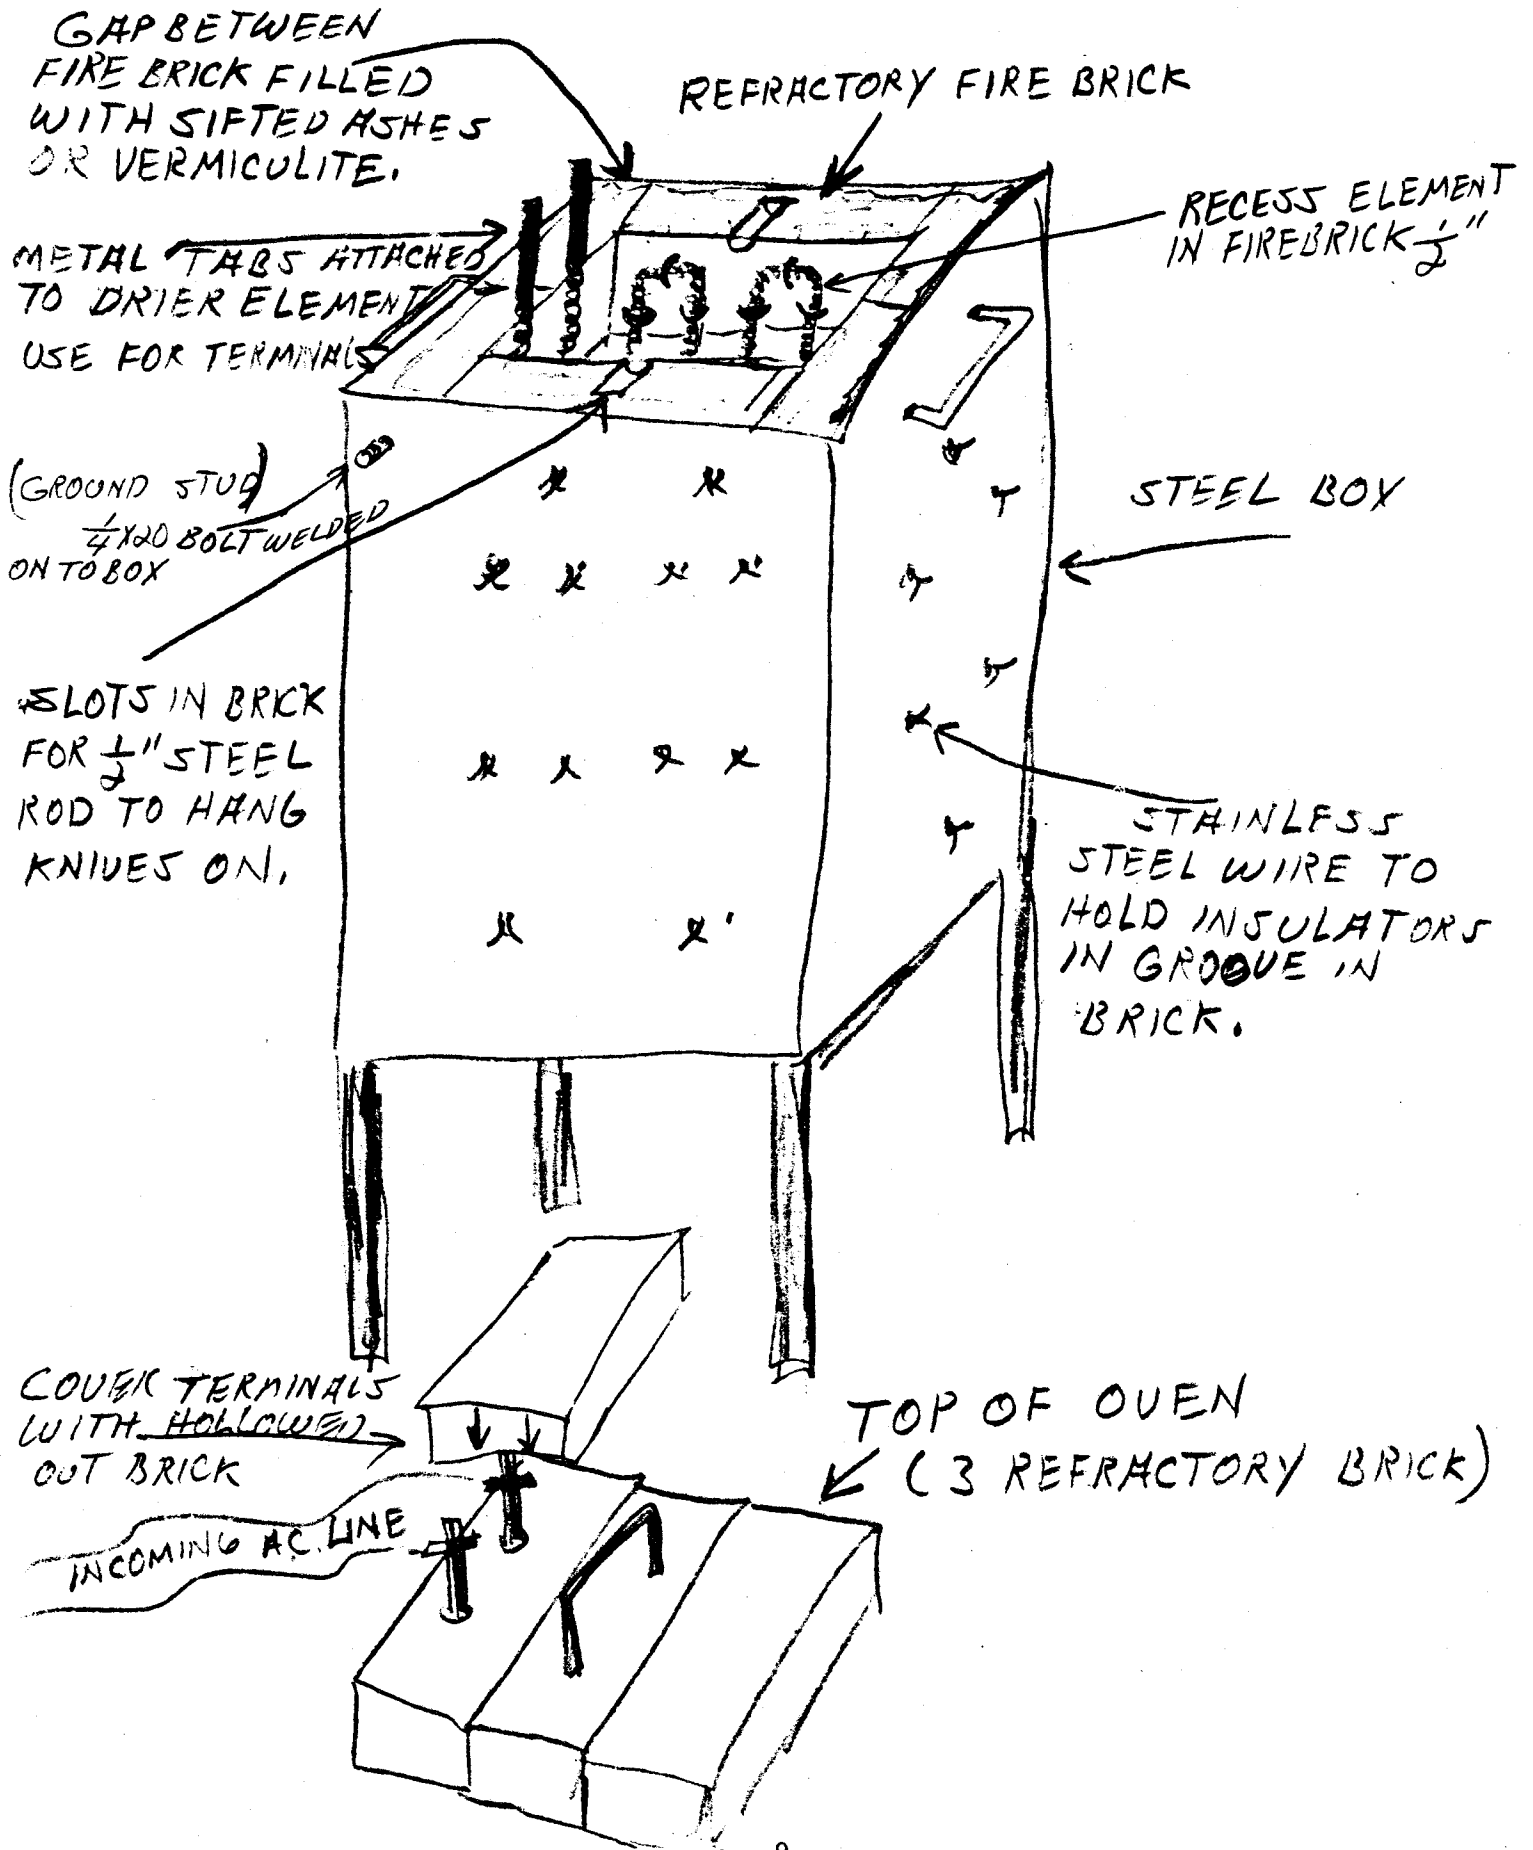 GAP BETWEEN
FIRE BRICK FILLED
WITH SIFTED ASHES
OR VERMICULITE.
REFRACTORY FIRE BRICK
RECESS ELEMENT
IN FIREBRICK 1/2"
METAL TABS ATTACHED
TO DRIER ELEMENT
USE FOR TERMINALS
(GROUND STUD)
1/4 X 20 BOLT WELDED
ON TO BOX
STEEL BOX
SLOTS IN BRICK
FOR 1/2" STEEL
ROD TO HANG
KNIVES ON.
STAINLESS
STEEL WIRE TO
HOLD INSULATORS
IN GROOVE IN
BRICK.
COVER TERMINALS
WITH HOLLOWED
OUT BRICK
TOP OF OVEN
(3 REFRACTORY BRICK)
INCOMING A.C. LINE